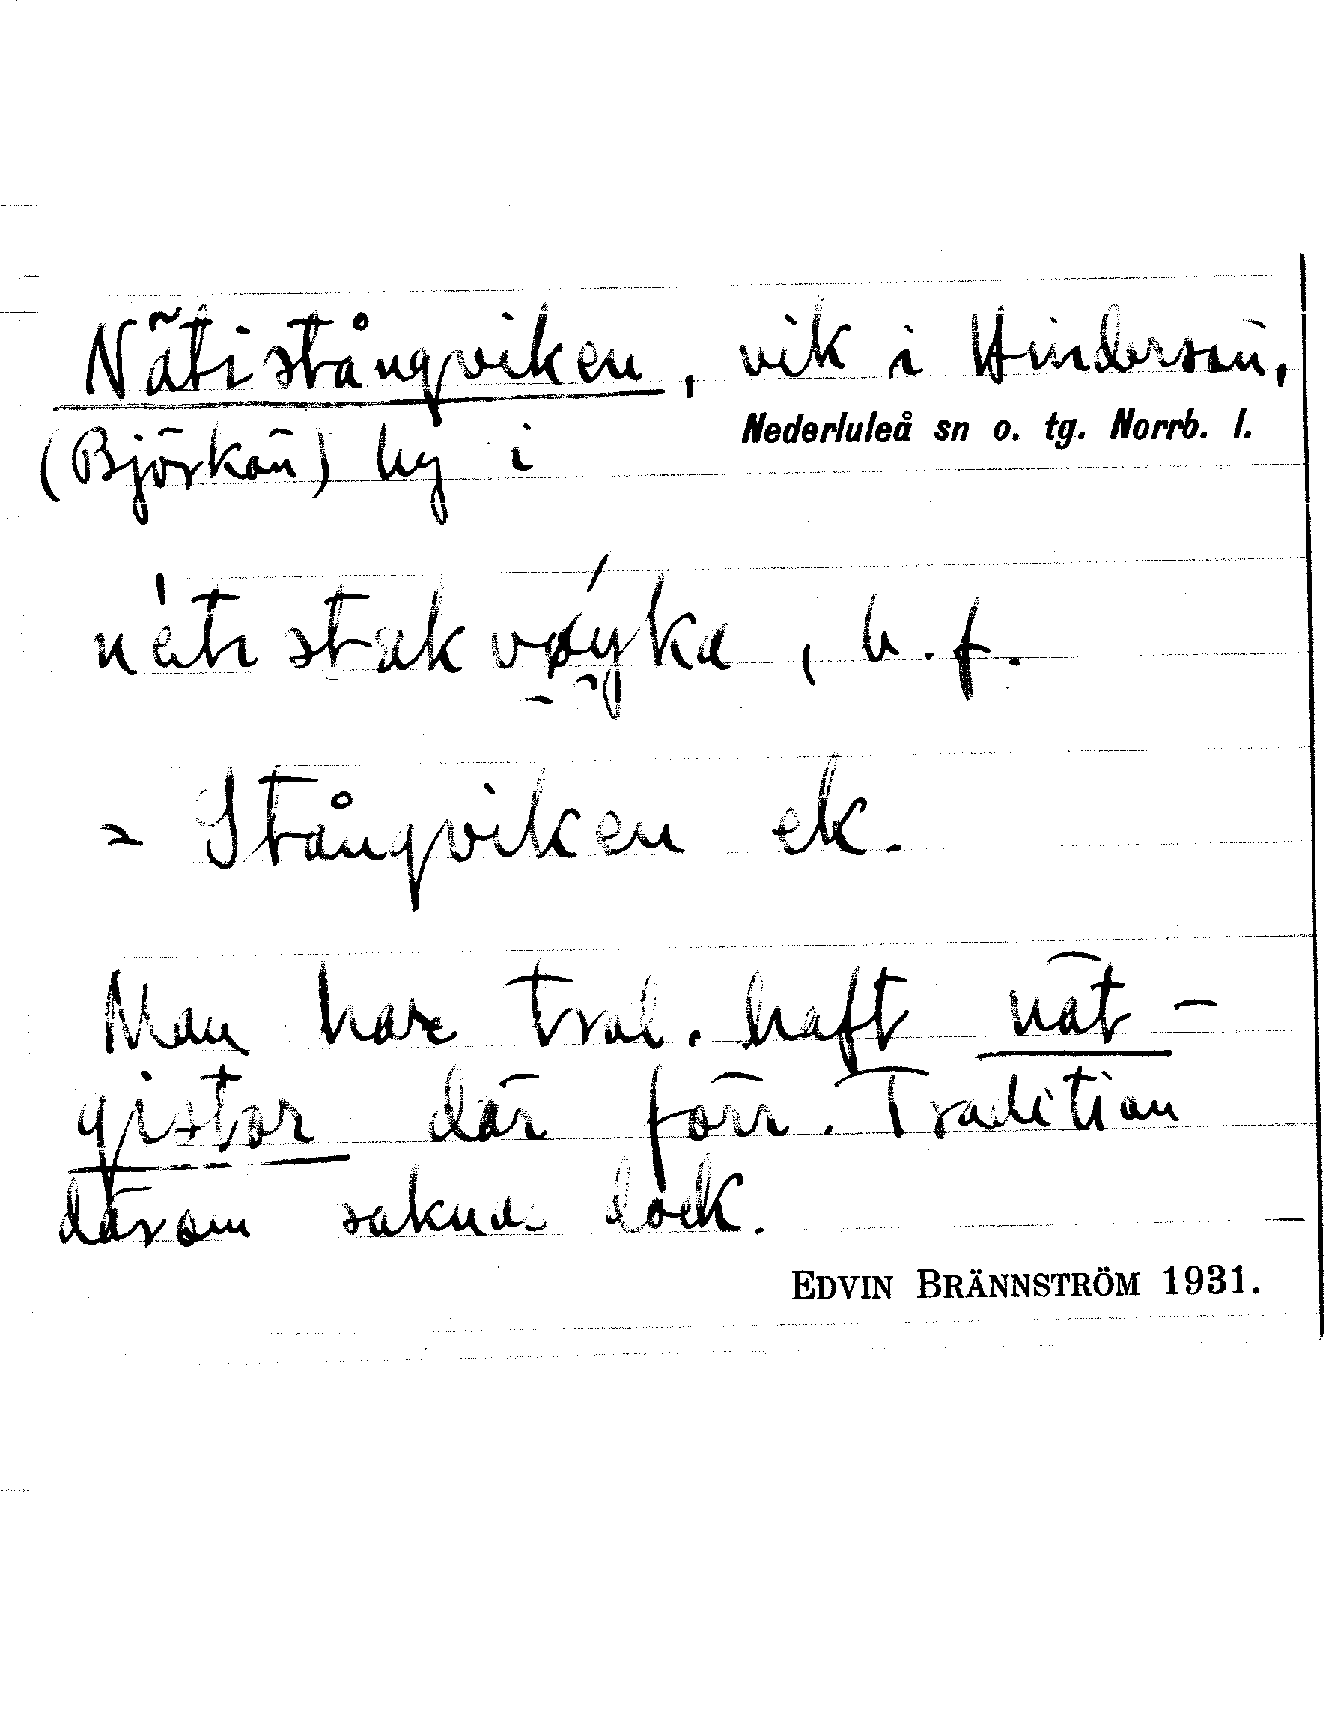 Nätistångviken, vik i Hindersön,
(Björkön) by i Nederluleå sn o. tg. Norrb. l.
nätistakvøyka, b.f.
= Stångviken ek.
Man har trol. haft nät-
gistor där förr. Tradition
därom saknas dock.
EDVIN BRÄNNSTRÖM 1931.